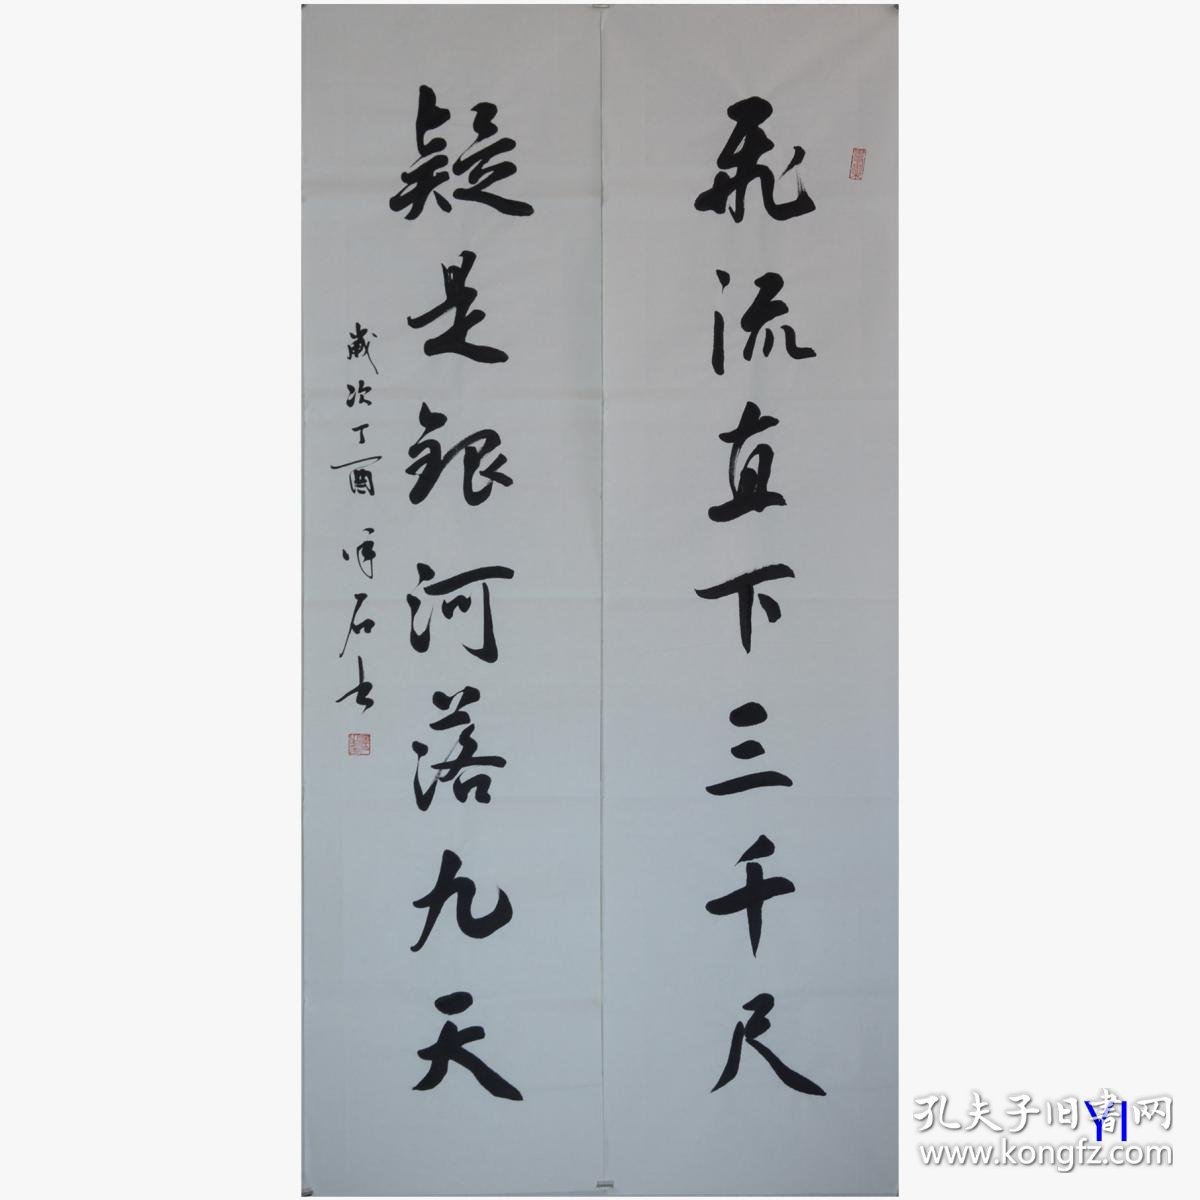 飛流直下三千尺
疑是銀河落九天
歲次丁酉 石書
孔夫子旧書网
www.kongfz.com
YI